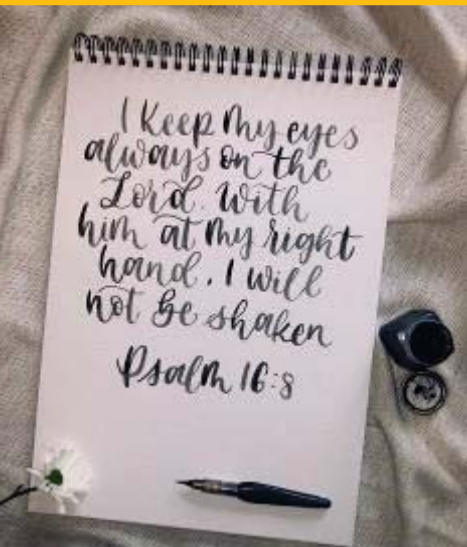 I Keep My eyes
always on the
Lord. With
him at My right
hand, I will
not be shaken
Psalm 16:8